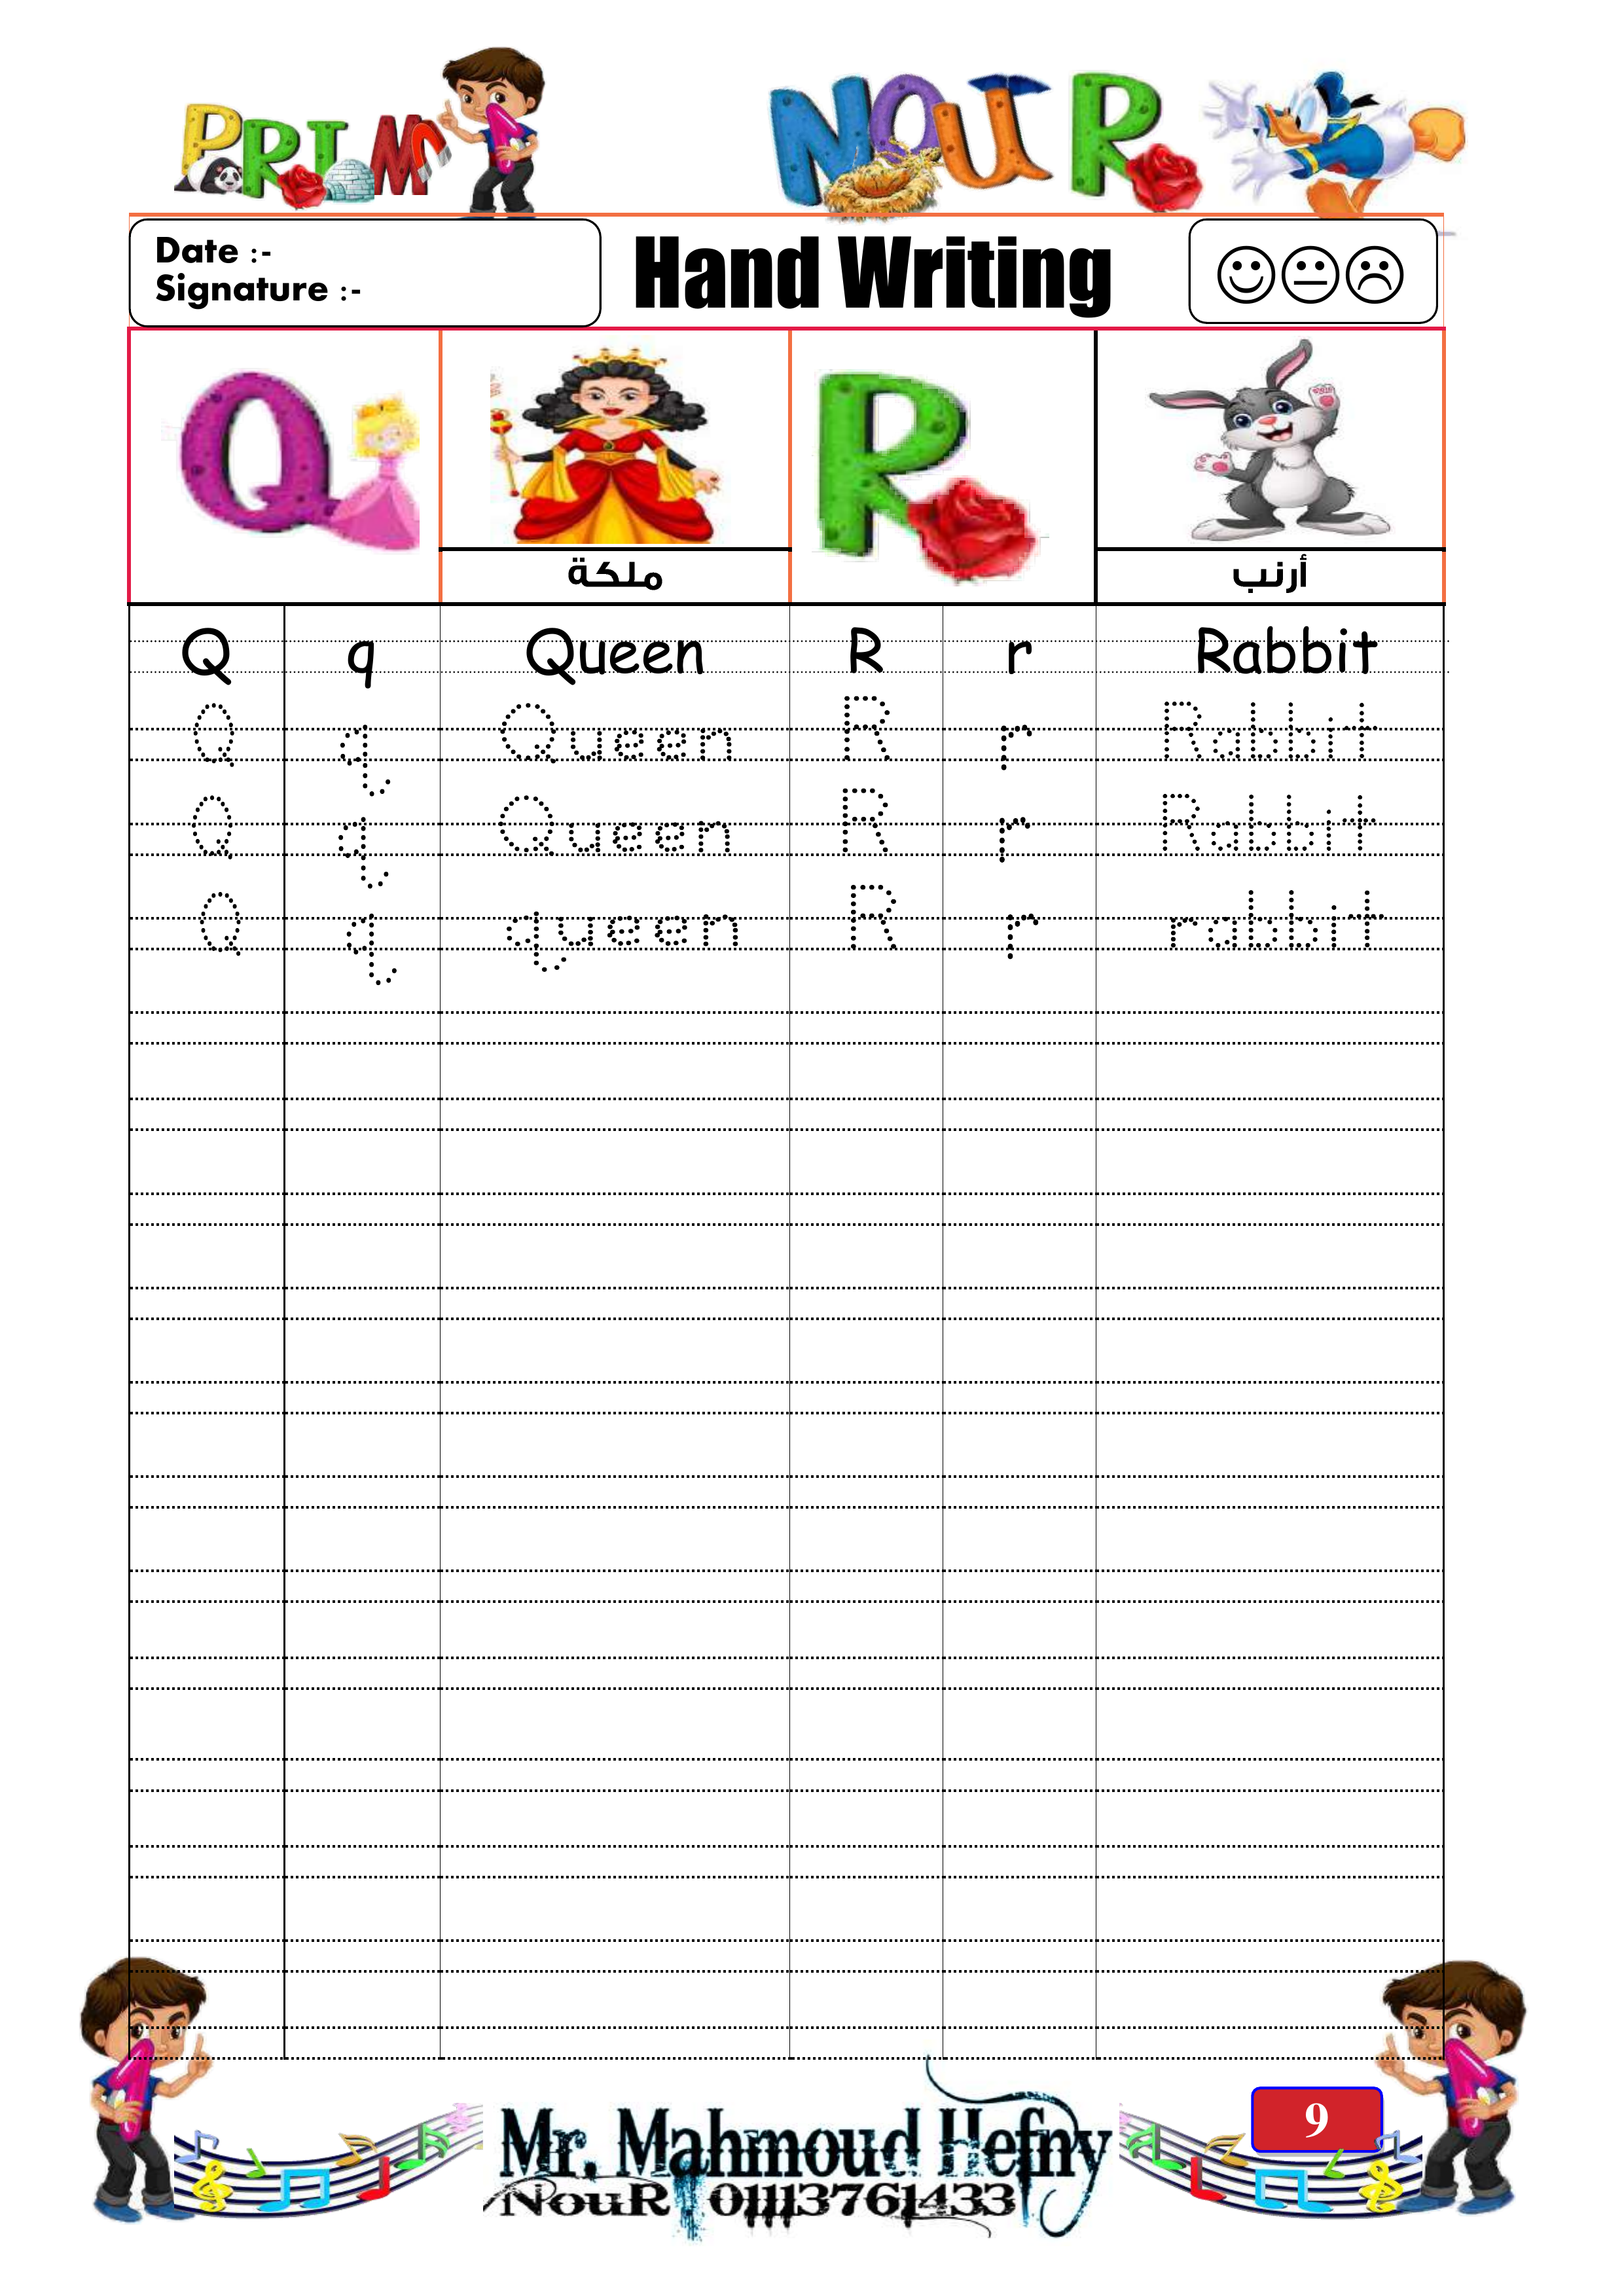 PRIM 1 NOUR
Date :-
Signature :-
Hand Writing
Q R
ملكة أرنب
Q q Queen R r Rabbit
Q q Queen R r Rabbit
Q q Queen R r Rabbit
Q q queen R r rabbit
9
Mr. Mahmoud Hefny
NouR 01113761433